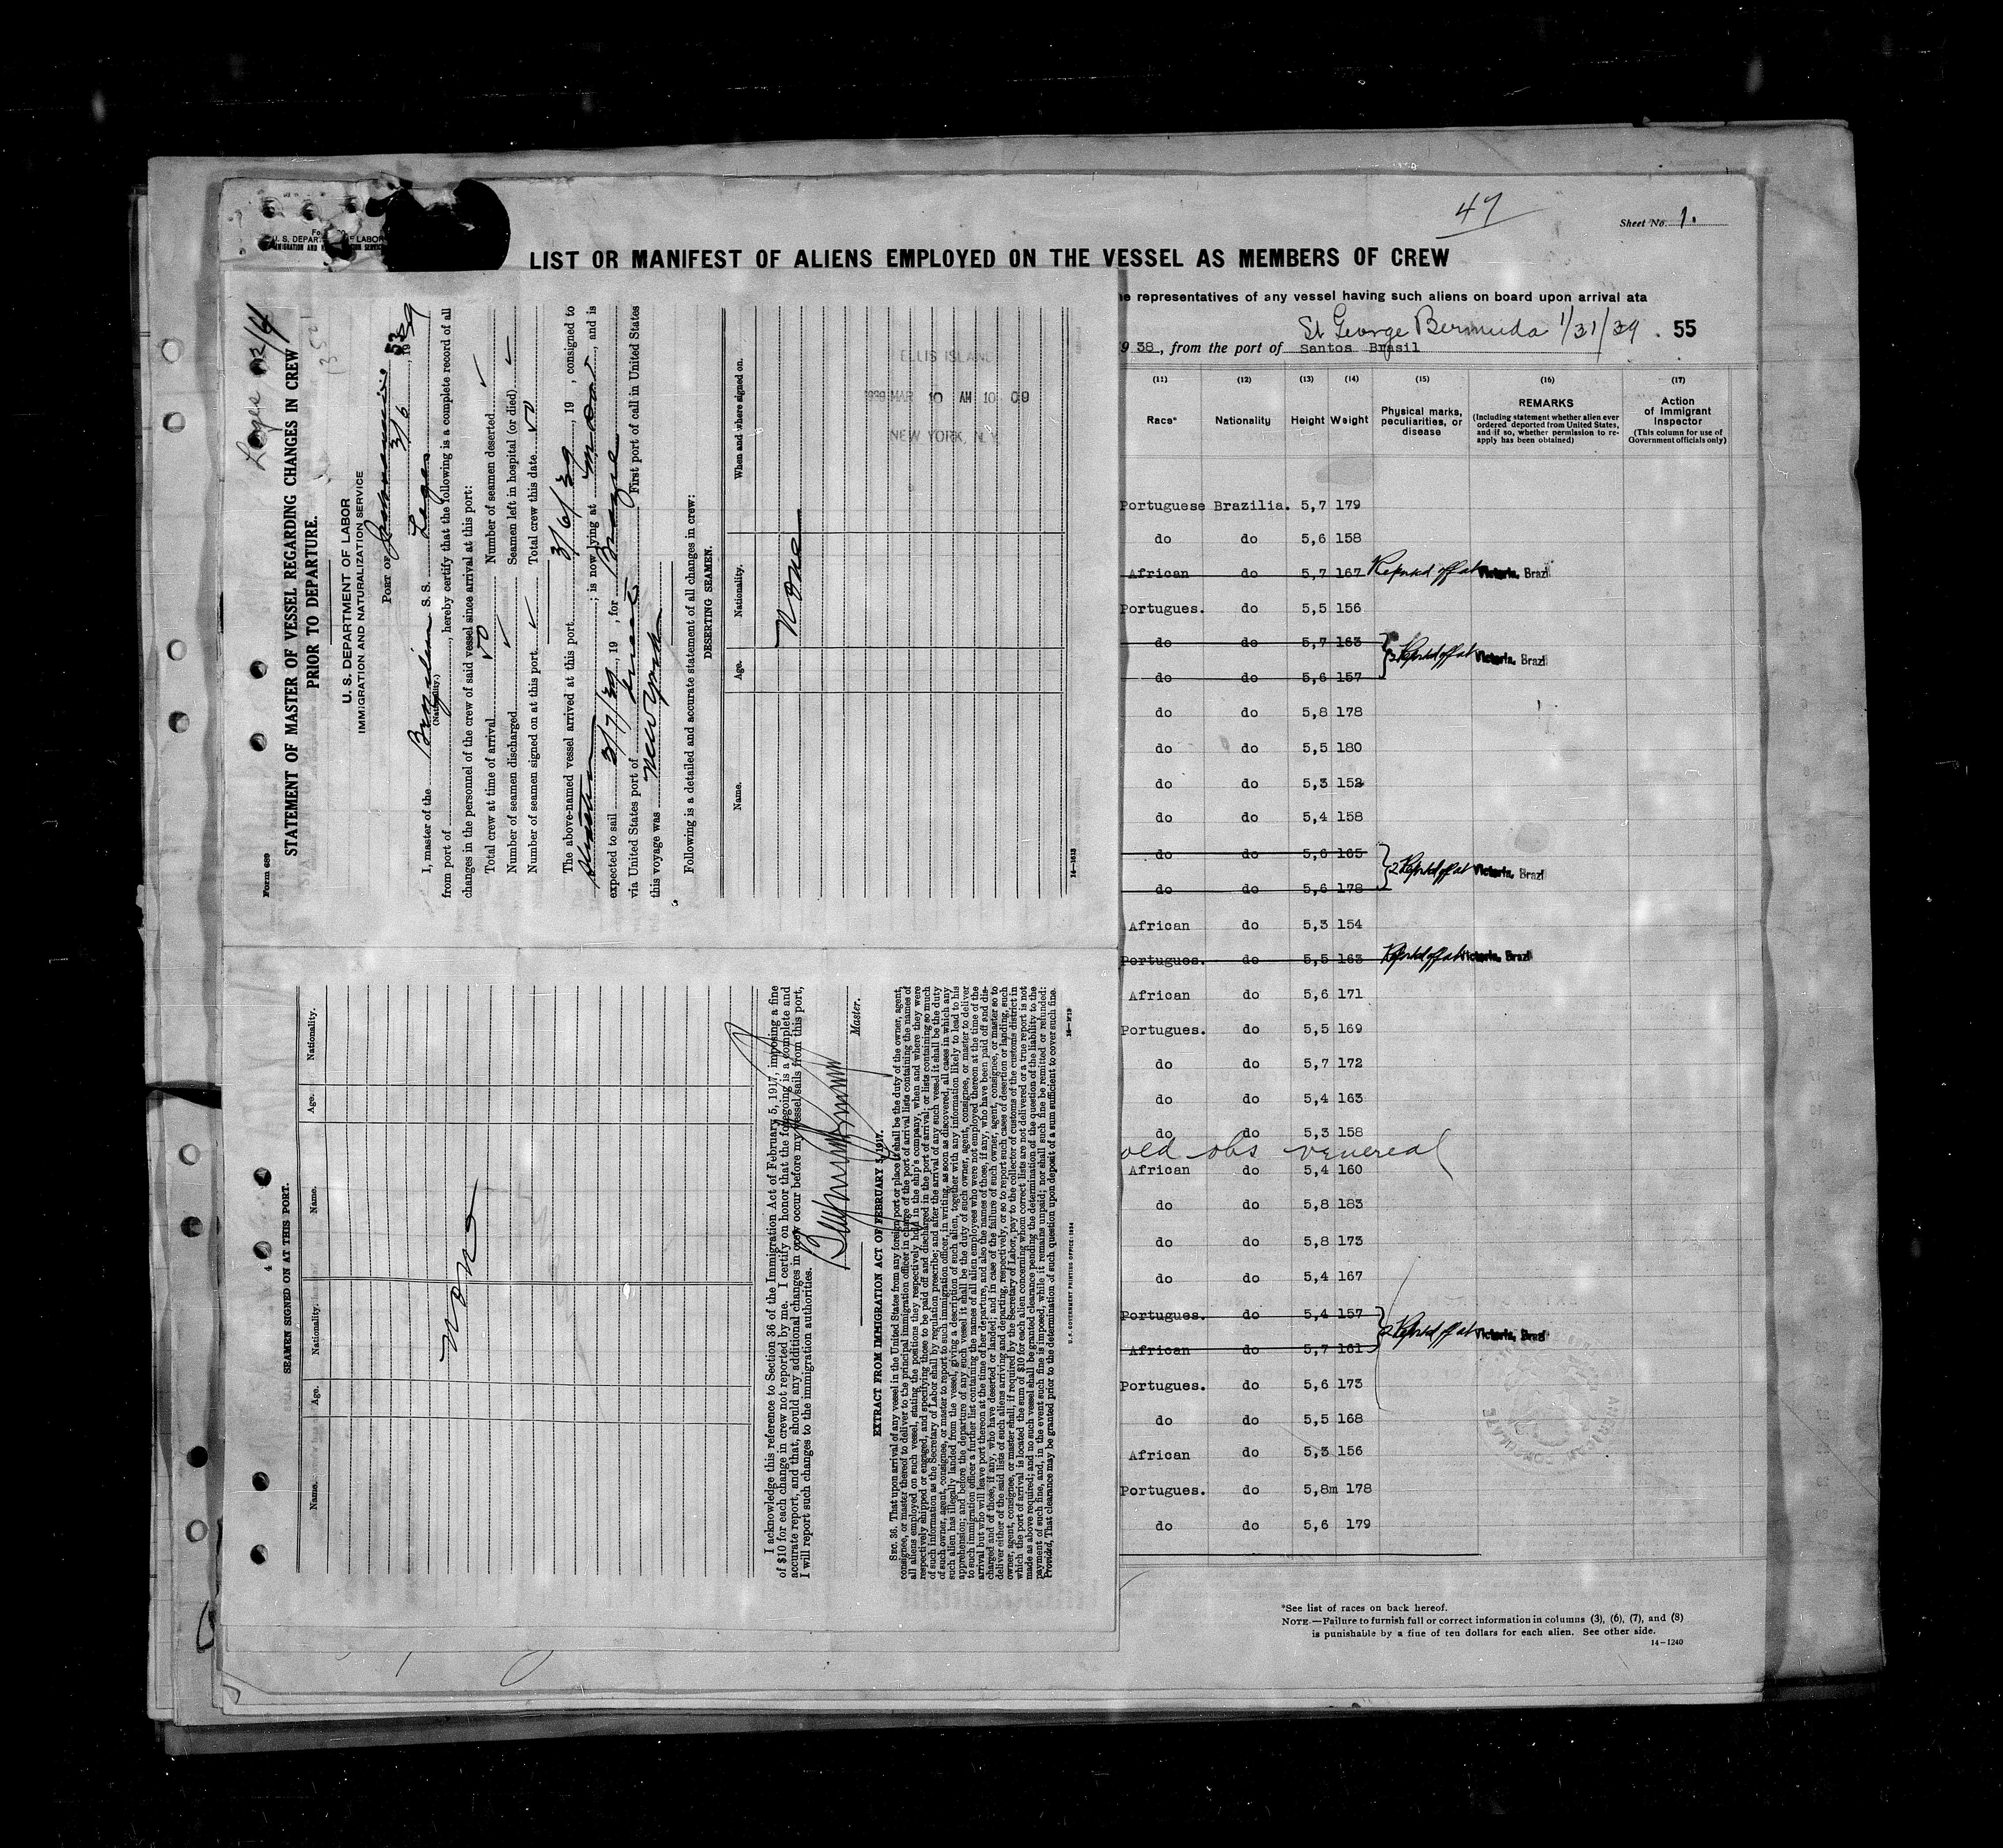 47
Sheet No. 1.
U. S. DEPARTMENT OF LABOR
LIST OR MANIFEST OF ALIENS EMPLOYED ON THE VESSEL AS MEMBERS OF CREW
representatives of any vessel having such aliens on board upon arrival ata
St George Bermuda 1/31/39 . 55
38, from the port of Santos Brasil
(11) (12) (13) (14) (15) (16) (17)
Race* Nationality Height Weight Physical marks, peculiarities, or disease REMARKS (Including statement whether alien ever ordered deported from United States, and if so, whether permission to reapply has been obtained) Action of Immigrant Inspector (This column for use of Government officials only)
Portuguese Brazilia. 5,7 179
do do 5,6 158
African do 5,7 167 Victoria, Brazil
Portugues. do 5,5 156
do do 5,7 163
Victoria, Brazil
do do 5,6 157
do do 5,8 178
do do 5,5 180
do do 5,3 152
do do 5,4 158
do do 5,6 165
2 Victoria, Brazil
do do 5,6 178
African do 5,3 154
Portugues. do 5,5 163 Victoria, Brazil
African do 5,6 171
Portugues. do 5,5 169
do do 5,7 172
do do 5,4 163
do do 5,3 158
old obs venereal
African do 5,4 160
do do 5,8 183
do do 5,8 173
do do 5,4 167
Portugues. do 5,4 157
2 Victoria, Brazil
African do 5,7 161
Portugues. do 5,6 173
do do 5,5 168
African do 5,3 156
Portugues. do 5,8m 178
do do 5,6 179
AMERICAN CONSULATE
*See list of races on back hereof.
NOTE.—Failure to furnish full or correct information in columns (3), (6), (7), and (8)
is punishable by a fine of ten dollars for each alien. See other side.
14-1240
Form 689
Lages
STATEMENT OF MASTER OF VESSEL REGARDING CHANGES IN CREW
PRIOR TO DEPARTURE.
U. S. DEPARTMENT OF LABOR
IMMIGRATION AND NATURALIZATION SERVICE
PORT OF
3/6, 1939
I, master of the Brazilian S. S. Lages
(Nationality.)
from port of , hereby certify that the following is a complete record of all
changes in the personnel of the crew of said vessel since arrival at this port:
Total crew at time of arrival Number of seamen deserted
Number of seamen discharged Seamen left in hospital (or died)
Number of seamen signed on at this port Total crew this date
The above-named vessel arrived at this port 3/6/39, 19 , consigned to
; is now lying at , and is
expected to sail 3/7/39, 19 , for Brazil
via United States port of First port of call in United States
this voyage was New York
Following is a detailed and accurate statement of all changes in crew:
DESERTING SEAMEN.
Name. Age. Nationality. When and where signed on.
None
ELLIS ISLAND
1939 MAR 10 AM 10 09
NEW YORK, N. Y.
SEAMEN SIGNED ON AT THIS PORT.
Name. Age. Nationality. Name. Age. Nationality.
None
I acknowledge this reference to Section 36 of the Immigration Act of February 5, 1917, imposing a fine
of $10 for each change in crew not reported by me. I certify on honor that the foregoing is a complete and
accurate report, and that, should any additional changes in crew occur before my vessel sails from this port,
I will report such changes to the immigration authorities.
Master.
EXTRACT FROM IMMIGRATION ACT OF FEBRUARY 5, 1917.
SEC. 36. That upon arrival of any vessel in the United States from any foreign port or place it shall be the duty of the owner, agent,
consignee, or master thereof to deliver to the principal immigration officer in charge of the port of arrival lists containing the names of
all aliens employed on such vessel, stating the positions they respectively hold in the ship's company, when and where they were
respectively shipped or engaged, and specifying those to be paid off and discharged in the port of arrival; or lists containing so much
of such information as the Secretary of Labor shall by regulation prescribe; and after the arrival of any such vessel it shall be the duty
of such owner, agent, consignee, or master to report to such immigration officer, in writing, as soon as discovered, all cases in which any
such alien has illegally landed from the vessel, giving a description of such alien, together with any information likely to lead to his
apprehension; and before the departure of any such vessel it shall be the duty of such owner, agent, consignee, or master to deliver
to such immigration officer a further list containing the names of all alien employees who were not employed thereon at the time of the
arrival but who will leave port thereon at the time of her departure, and also the names of those, if any, who have been paid off and dis-
charged and of those, if any, who have deserted or landed; and in case of the failure of such owner, agent, consignee, or master so to
deliver either of the said lists of such aliens arriving and departing, respectively, or so to report such cases of desertion or landing, such
owner, agent, consignee, or master shall, if required by the Secretary of Labor, pay to the collector of customs of the customs district in
which the port of arrival is located the sum of $10 for each alien concerning whom correct lists are not delivered or a true report is not
made as above required; and no such vessel shall be granted clearance pending the determination of the question of the liability to the
payment of such fine, and, in the event such fine is imposed, while it remains unpaid; nor shall such fine be remitted or refunded:
Provided, That clearance may be granted prior to the determination of such question upon deposit of a sum sufficient to cover such fine.
U. S. GOVERNMENT PRINTING OFFICE: 1934